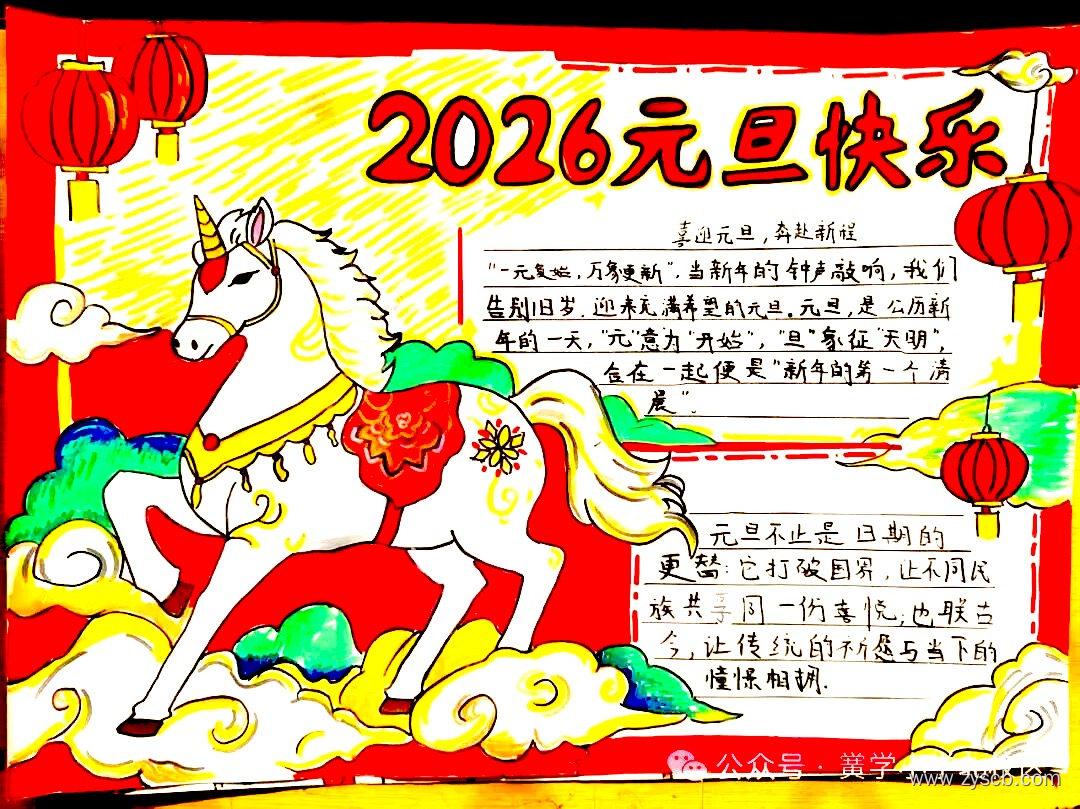 2026元旦快乐
喜迎元旦，奔赴新程
"一元复始，万象更新"，当新年的钟声敲响，我们
告别旧岁，迎来充满希望的元旦。元旦，是公历新
年的一天，"元"意为"开始"，"旦"象征"天明"，
合在一起便是"新年的第一个清
晨"。
元旦不止是日期的
更替：它打破国界，让不同民
族共享同一份喜悦；也联古
今，让传统的祈愿与当下的
憧憬相拥.
公众号·黉学
www.zyscb.com